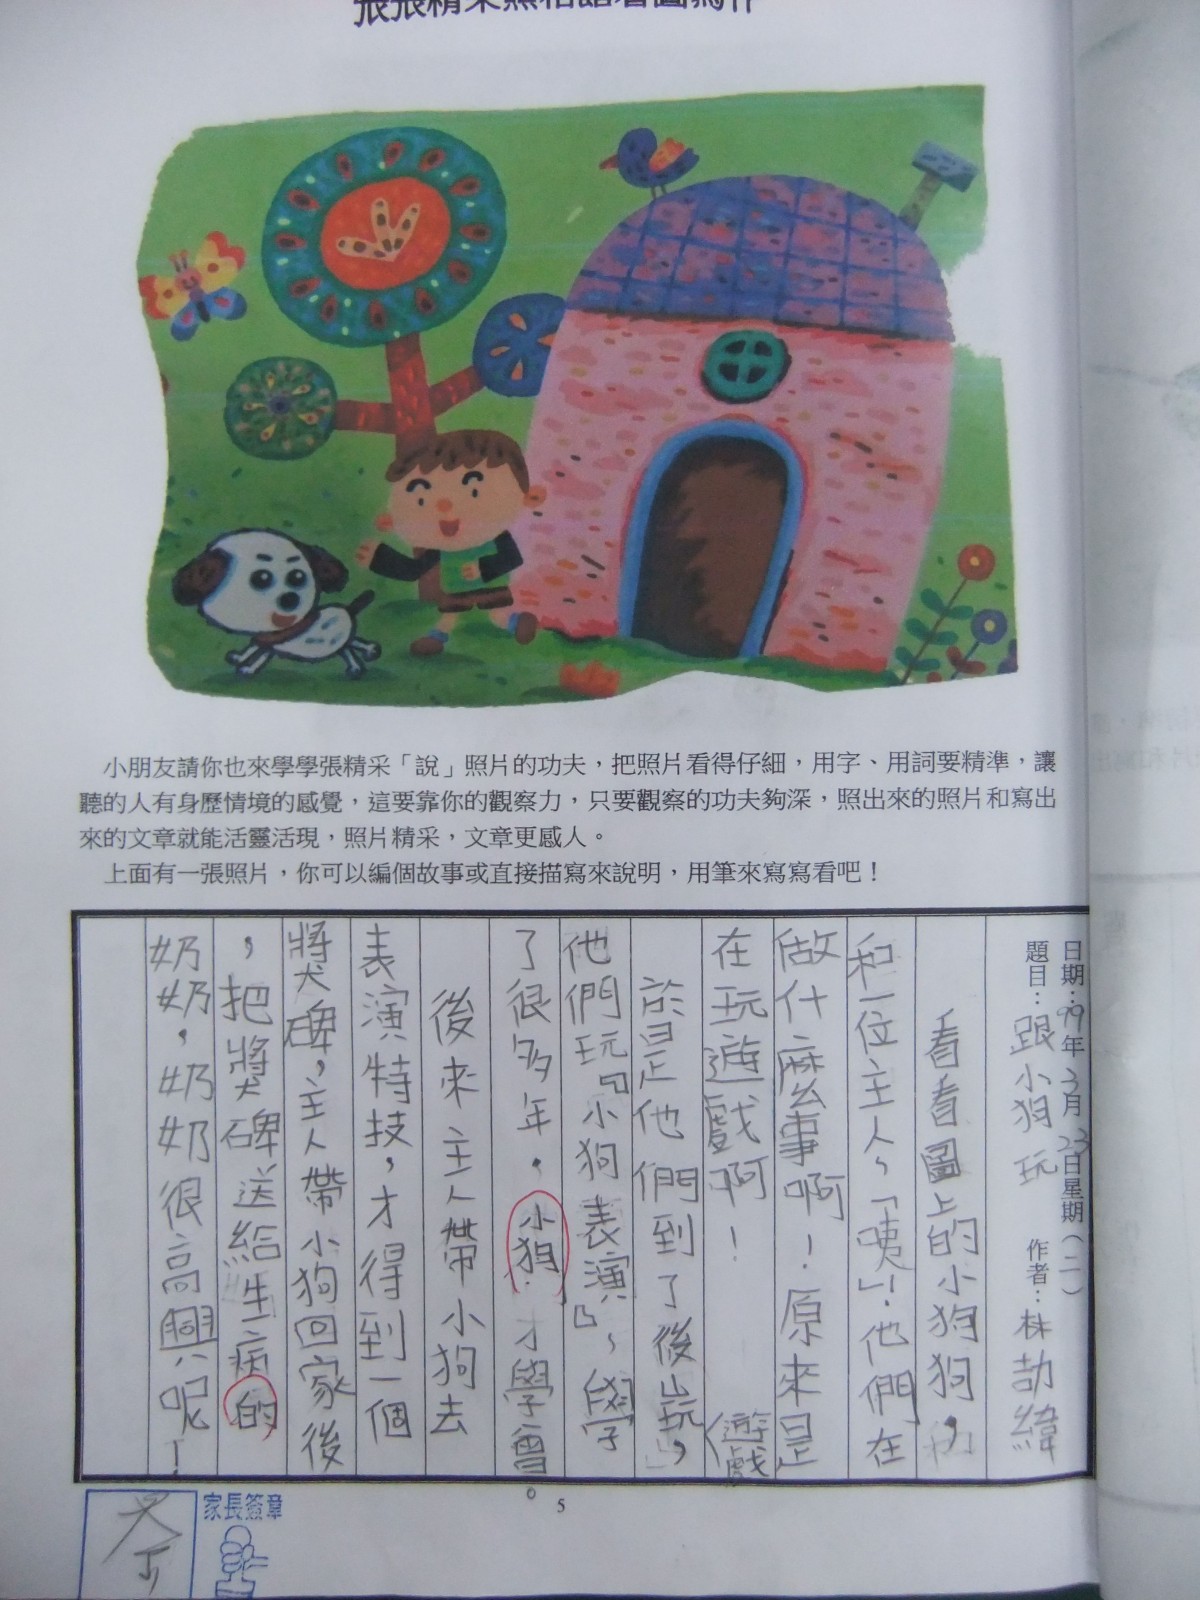 張張精采照相館看圖寫作
小朋友請你也來學學張精采「說」照片的功夫，把照片看得仔細，用字、用詞要精準，讓
聽的人有身歷情境的感覺，這要靠你的觀察力，只要觀察的功夫夠深，照出來的照片和寫出
來的文章就能活靈活現，照片精采，文章更感人。
上面有一張照片，你可以編個故事或直接描寫來說明，用筆來寫寫看吧！
日期：99年3月23日星期（二）
題目：跟小狗玩 作者：林劼緯
看看圖上的小狗狗，
和一位主人、「咦」！他們在
做什麼事啊！原來是
在玩遊戲啊！
遊戲
於是他們到了後山玩，
他們玩『小狗表演』、學
了很多年，小狗才學會。
後來主人帶小狗去
表演特技，才得到一個
獎碑，主人帶小狗回家後
，把獎碑送給生病的
奶奶，奶奶很高興呢！
5
家長簽章